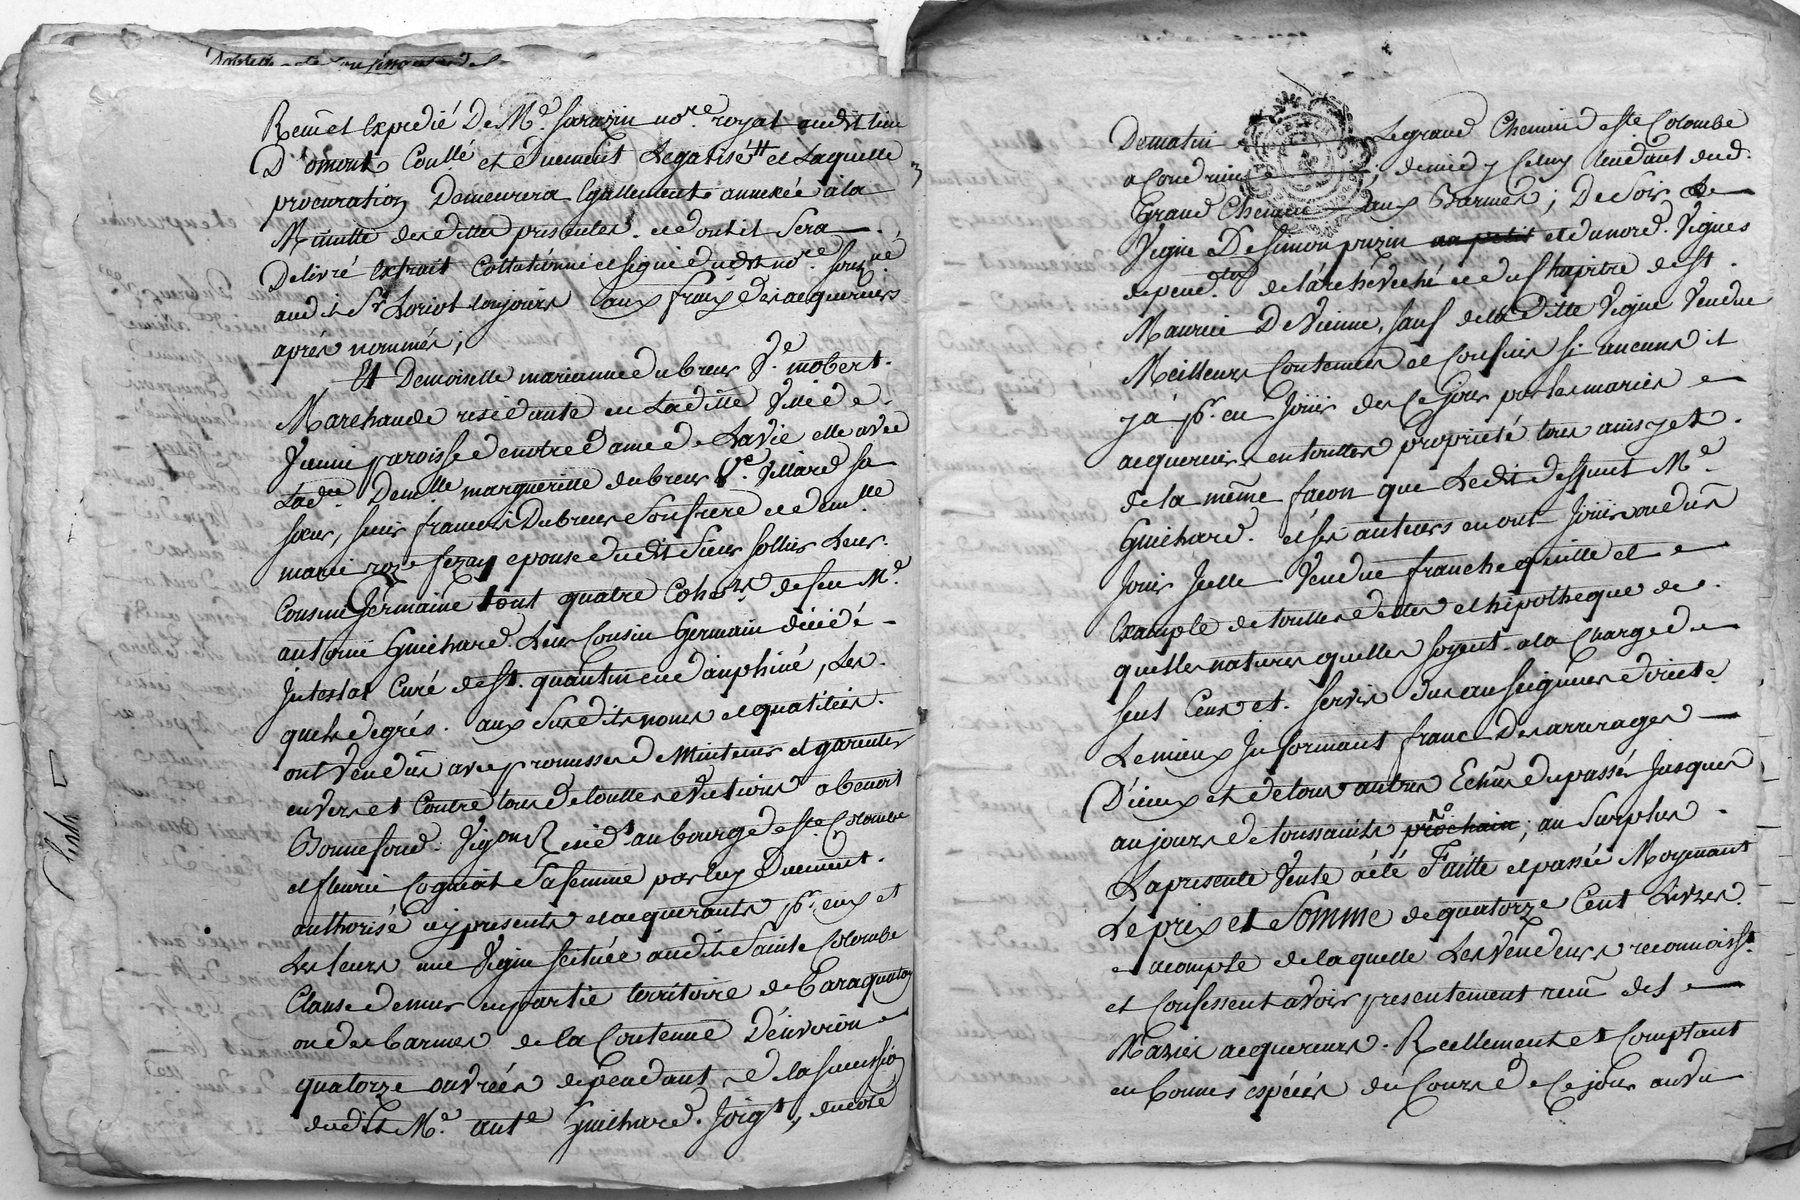 Reçu et Expedié De Me. Sarazin nore. royal audit lieu
D'omont Coullé et duement Legalisé et Laquelle
procuration Demeurera Egallement annexée a la
Minutte desdittes presentes. et dont il sera
Delivré extrait Collationné et signé dudit nore. souzné.
audit Sr. Loriot toujours aux fraix des acquereurs
après nommés;
Et Demoiselle marianne dubreux Ve. mobert.
Marchande residante en Laditte Ville de
Vienne parroisse de notre dame de Lavie elle avec
Ladte. Demelle margueritte dubreux Ve. Villard sa
sœur, sieur francois Dubreux son frere et demlle.
marie roze epouse dudit sieur Leur
Cousine Germaine tout quatre Coheres. de feu Me.
antoine Guichard Leur Cousin Germain décédé
Intestat Curé de St. quantin en dauphiné, Les
quels degrés. aux susdits noms et qualités.
ont Vendus avec promesse de Mintenir et garentir
envers et Contre tous de touttes evictions a benoit
Bonnefond. Vigon Residt. au bourg de ste. Colombe
et fleurie Cogniat sa femme par luy Duement
authorisé icy presents et acquerants pr. eux et
Les leurs une Vigne scituée audit Sainte Colombe
Clause de murs en partie territoire de Caraquatou
ou des barmes de la Contenue D'environ
quatorze ouvrées dependant de la succession
dudit Me. ante. Guichard. Joigt., du coté
3
De matin Le grand Chemin de ste. Colombe
a Condrieu; de midy Celuy tendant dud.
Grand Chemin aux Barmes; De soir
Vigne De simon et du nord. Vignes
dependtes. de l'archeveché et du Chapitre de st.
Maurice De Vienne, sauf de laditte Vigne Vendue
Meilleurs Contenues et Confins si aucuns il
y a pr. en Jouir des Ce jour par les mariés
acquereurs en touttes proprieté tous ainsy et
de la même façon que Ledit deffunt Me.
Guichard. et ses auteurs en ont Jouis ou dus
Jouir Icelle Vendue franche quitte et
Example de touttes dettes et hipotheque de
quelles natures quelles soyent. a la Charge de
seul Cens et. servis dus au seigneur direct
Le mieux Informant franc Des arrerages
D'iceux et de tous autres Echus du passé Jusques
au jours de toussaints prochain; au surplus
La presente Vente a été Faitte et passée Moyenant
Le prix et Somme de quatorze Cent Livres.
a compte de laquelle Les Vendeurs reconnoisst.
et Confessent avoir presentement reçu des
Mariés acquereurs. Reellement et Comptant
en bonnes espéces du Cours de Ce jour au vu